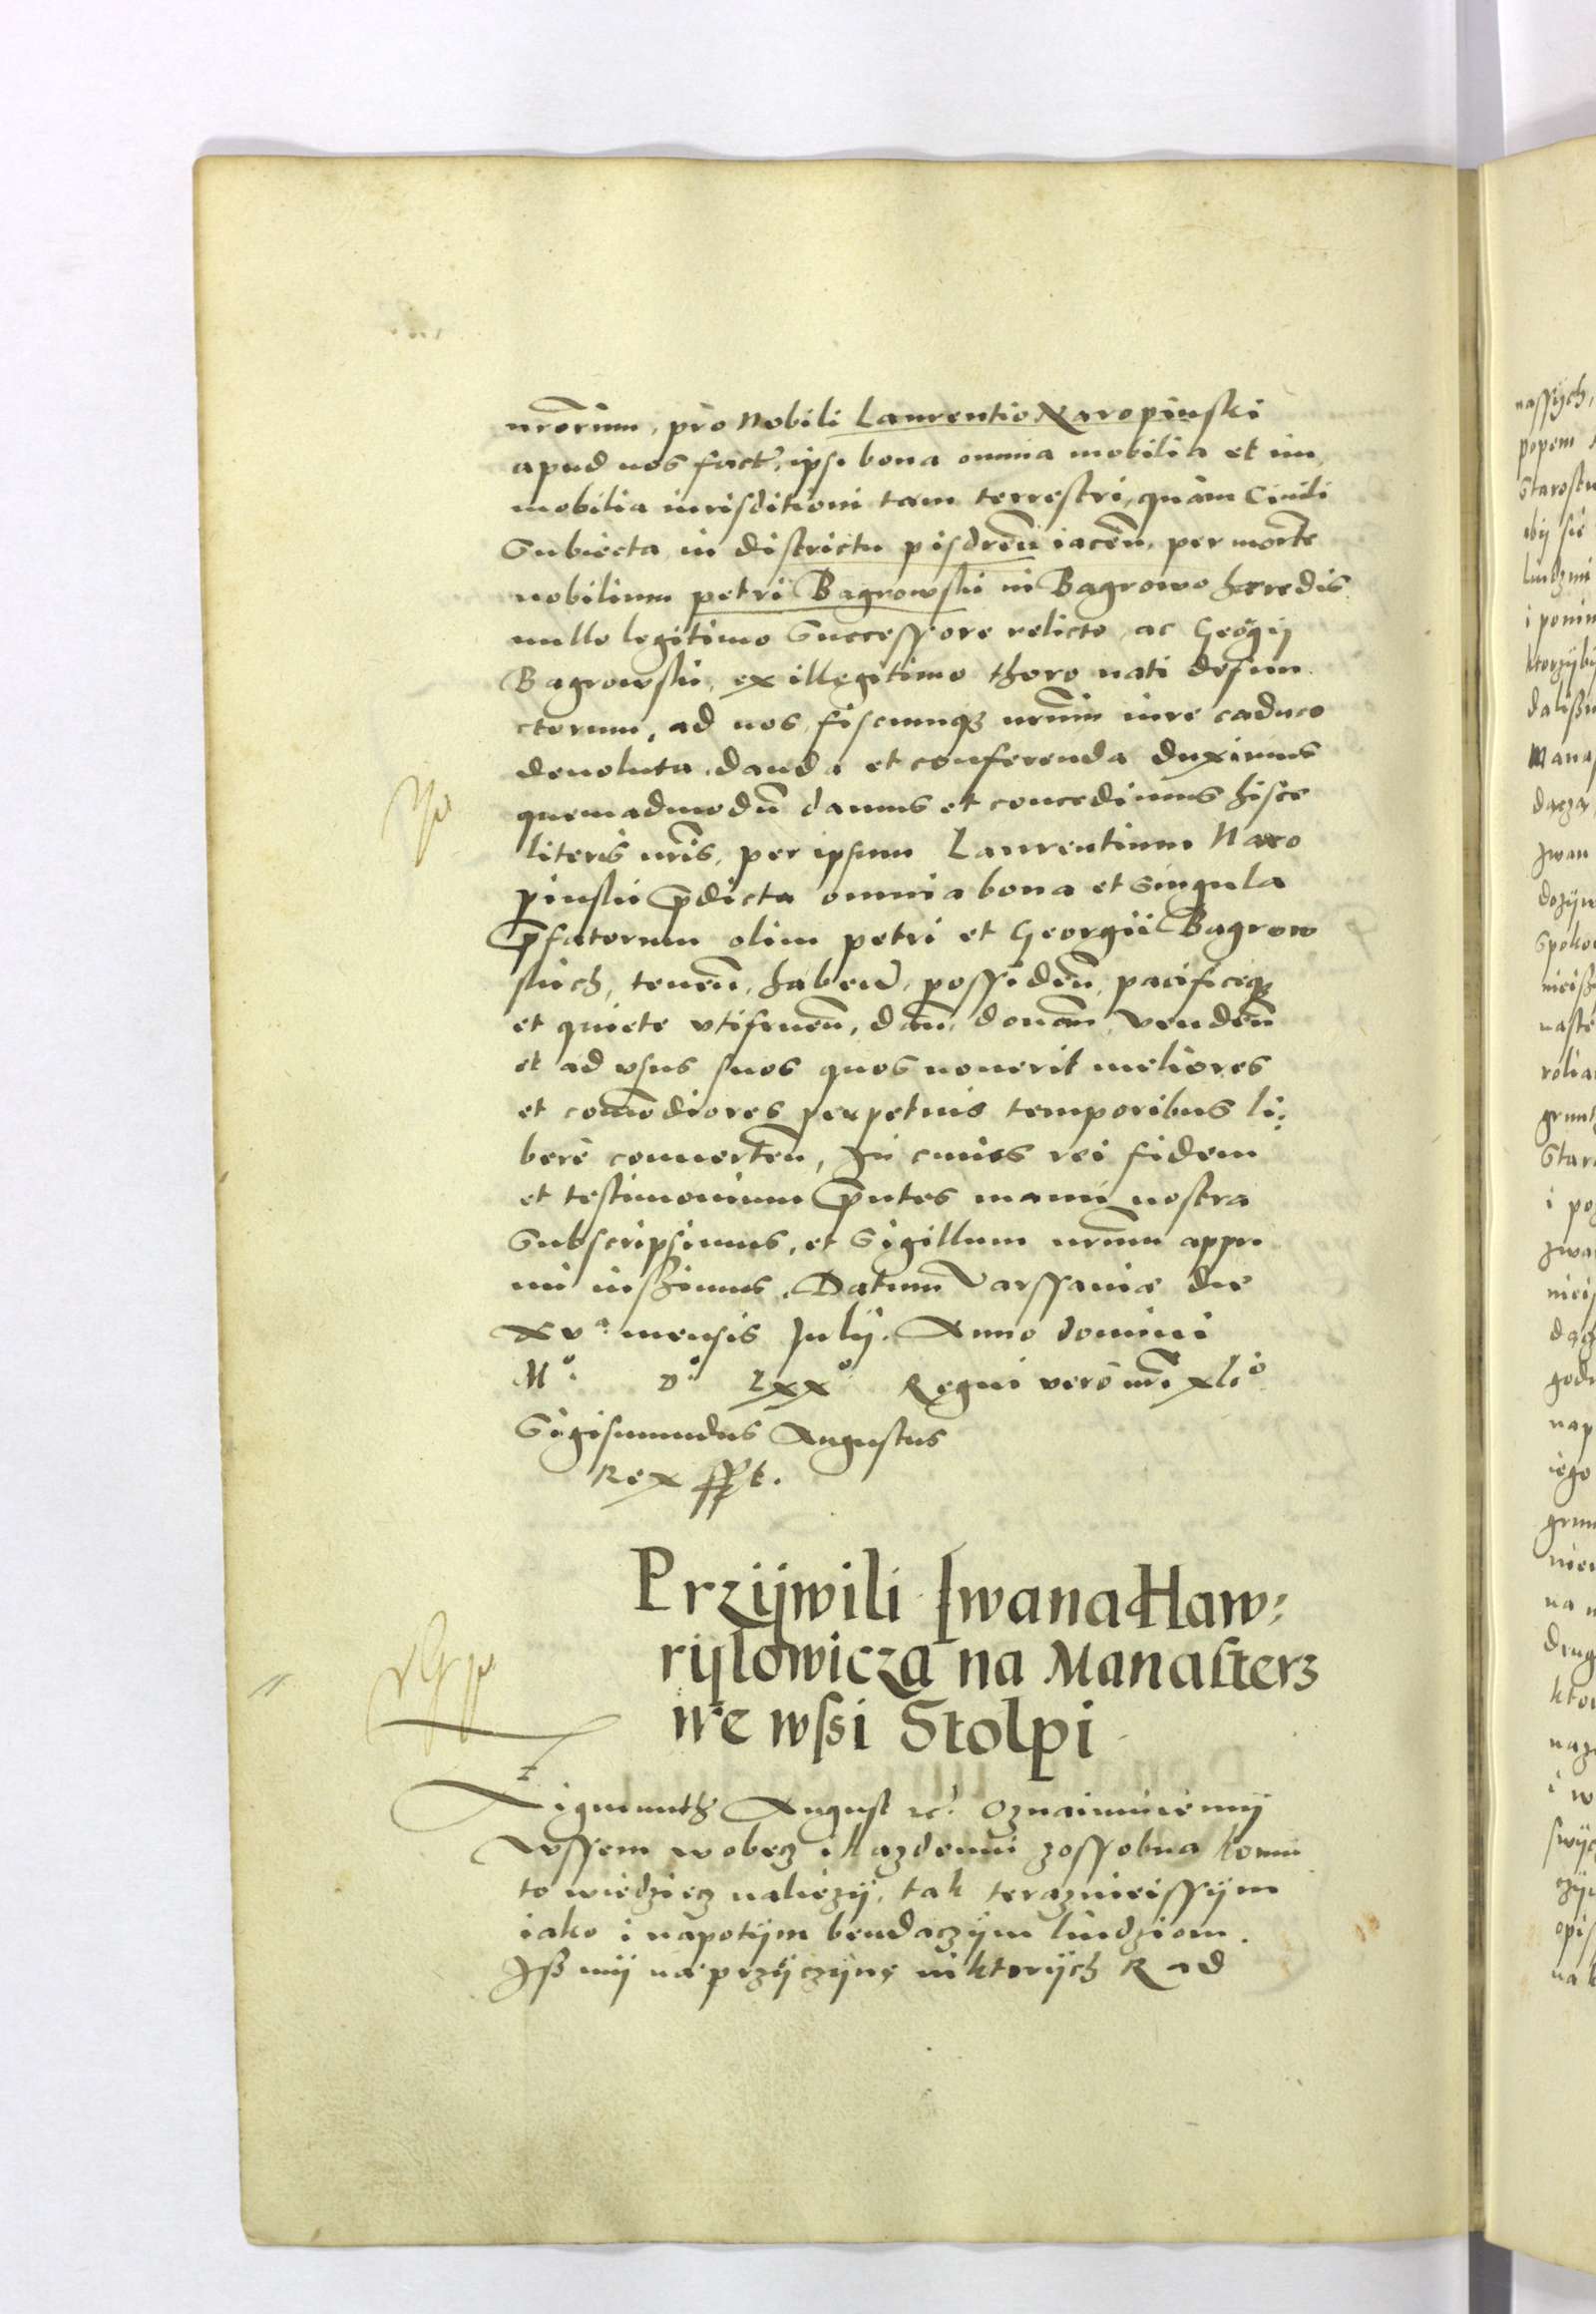 nr̃orum, pro Nobili Laurentio Naropinski
apud nos fact̃, ipsi bona omnia mobilia et im
mobilia iurisditioni tam terrestri, quàm Ciuili
Subiecta in districtu pisdreñ iaceñ, per mort̃e
nobilium petri Bagrowski in Bagrowo hæredis
nullo legitimo Successore relicto, ac Geo͂gij
Bagrowski, ex illegitimo thoro nati defun
ctorum, ad nos fiscumqꝫ nr̃um iure caduco
deuoluta, danda et conferenda duximus
quemadmodũ damus et concedimus hisce
literis nr̃is, per ipsum Laurentium Naro
pinski p̃dicta omnia bona et Singula
p̃fatorum olim petri et Georgii Bagrow
skich, teneñ, habeñd, possideñ, pacificeqꝫ
et quiete vtifrueñ, dañ, donañ, vendeñ
et ad vsus suos quos nouerit meliores
et com̃odiores perpetuis temporibus li:
berè conuerteñ, In cuius rei fidem
et testimonium p̃ntes manu nostra
Subscripsimus, et Sigillum nr̃um appri
mi iussimus. Datum Varssauiæ die
xvᵃ mensis Julij. Anno domini
M.º D.º Lxx.º Regni verò nr̃i xliº
Sigismundus Augustus
Rex sst.
Przijwili Iwana Haw:
rijlowicza na Manasterz
we wssi Stolpi
Zigmunth August ꝛc̃. Oznaimuiemij
wssem wobecz i kazdemu zossobna komu
to wiedziecz naliezij, tak teraznieissijm
iako i napotijm bendaczijm liudziom.
Iß mij na przijczijnę niktorijch Rad